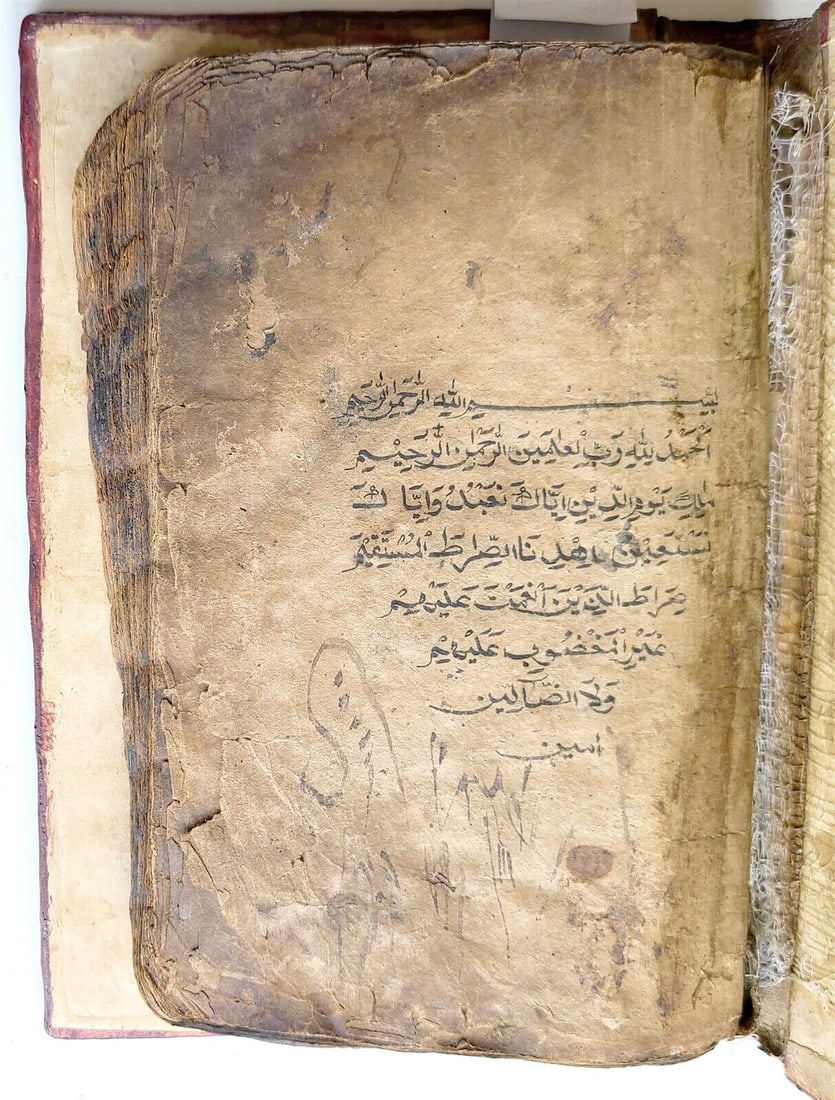 بسم الله الرحمن الرحيم
اَلْحَمْدُ لِلّٰهِ رَبِّ الْعٰلَمِيْنَ الرَّحْمٰنِ الرَّحِيْمِ
مٰلِكِ يَوْمِ الدِّيْنِ اِيَّاكَ نَعْبُدُ وَاِيَّاكَ
نَسْتَعِيْنُ اِهْدِنَا الصِّرَاطَ الْمُسْتَقِيْمَ
صِرَاطَ الَّذِيْنَ اَنْعَمْتَ عَلَيْهِمْ
غَيْرِ الْمَغْضُوْبِ عَلَيْهِمْ
وَلَا الضَّآلِّيْن
امين